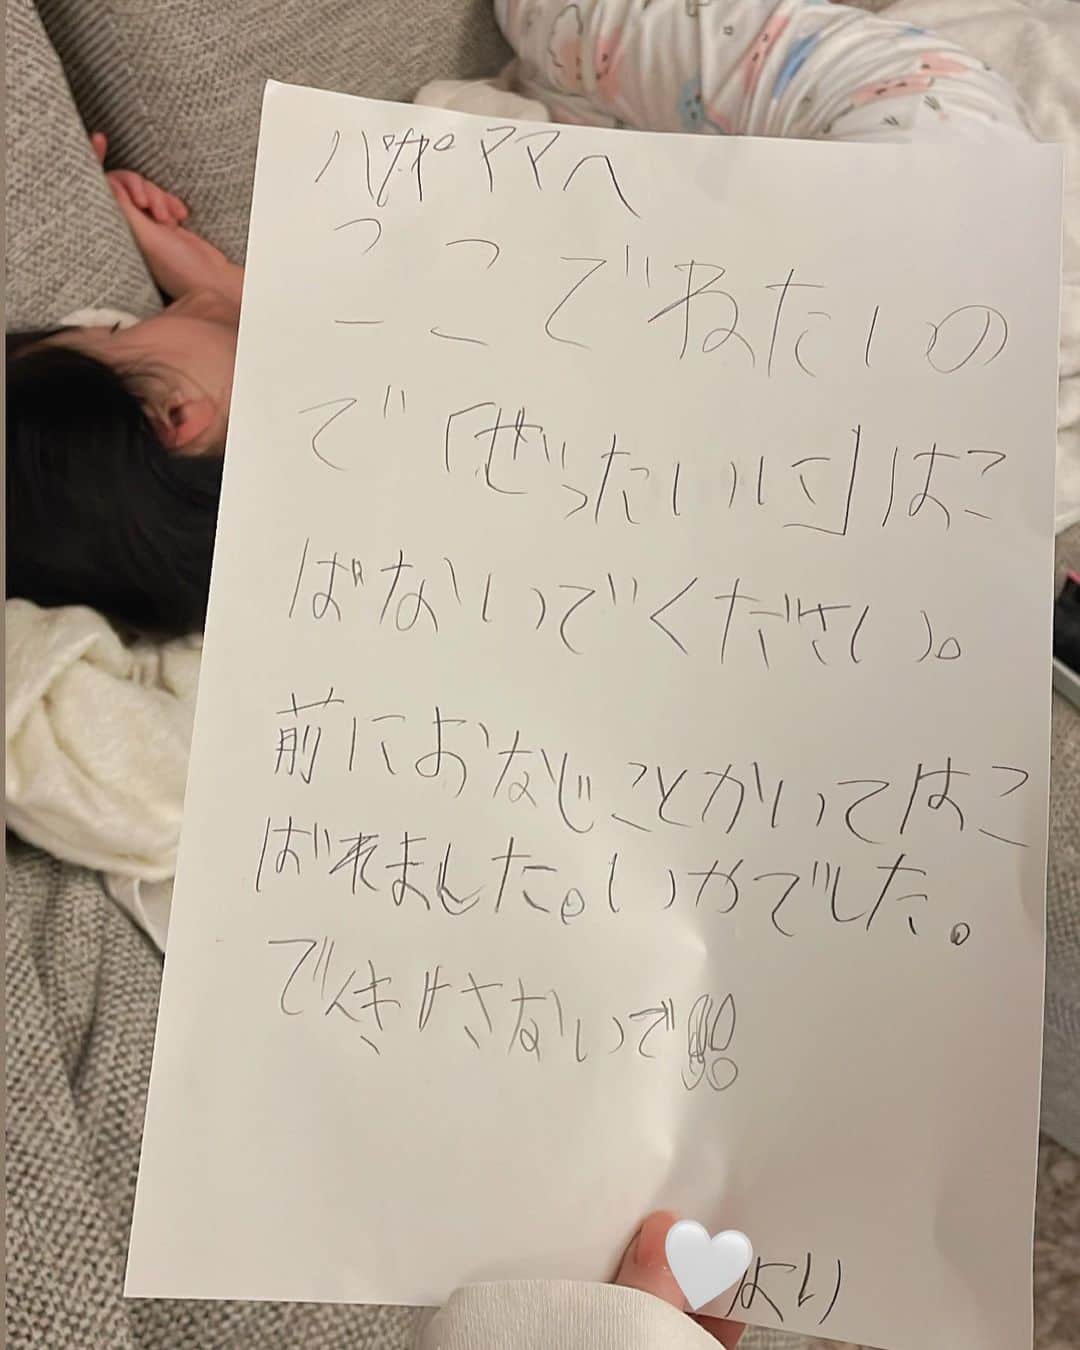 パパママへ
ここでねたいの
で「ぜったいに」はこ
ばないでください。
前におなじことかいてはこ
ばれました。いやでした。
でんきけさないで!!
より